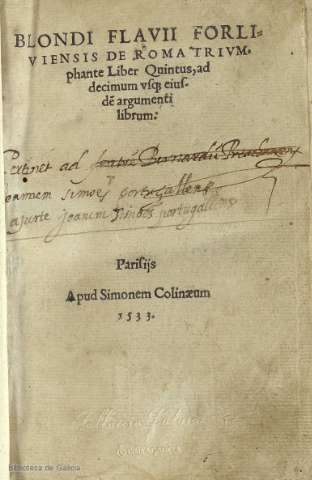 BLONDI FLAVII FORLI-
VIENSIS DE ROMA TRIVM-
phante Liber Quintus, ad
decimum vsq; eius-
dē argumenti
librum.
Pertinet ad
simoēs portugallens
Joanem portugallens
Parisijs
Apud Simonem Colinæum
1533.
Biblioteca de Galicia